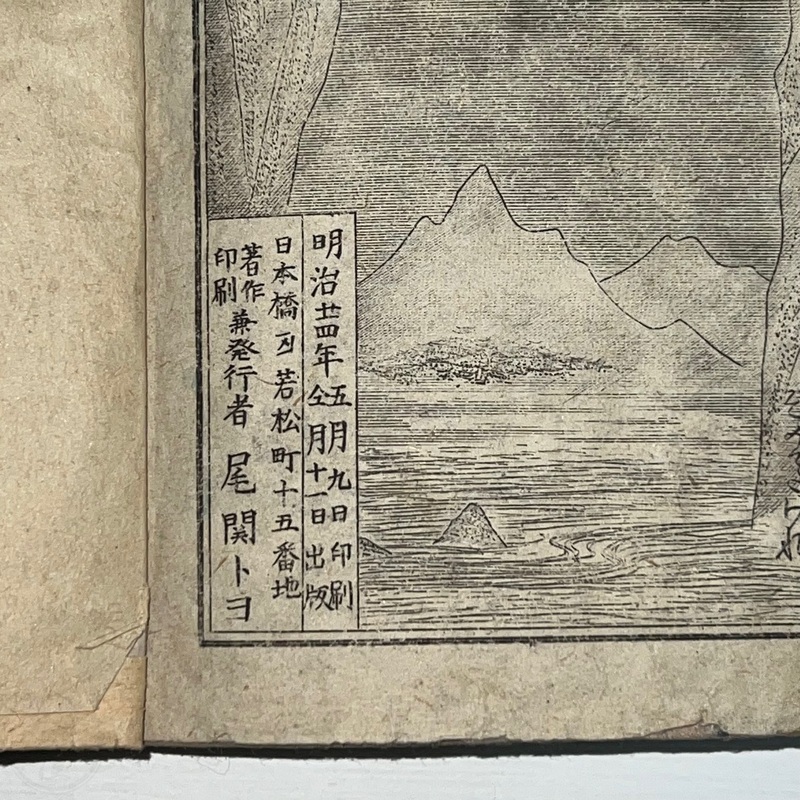 明治廿四年五月九日印刷
仝月十一日出版
日本橋区若松町十五番地
著作印刷兼発行者 尾関トヨ